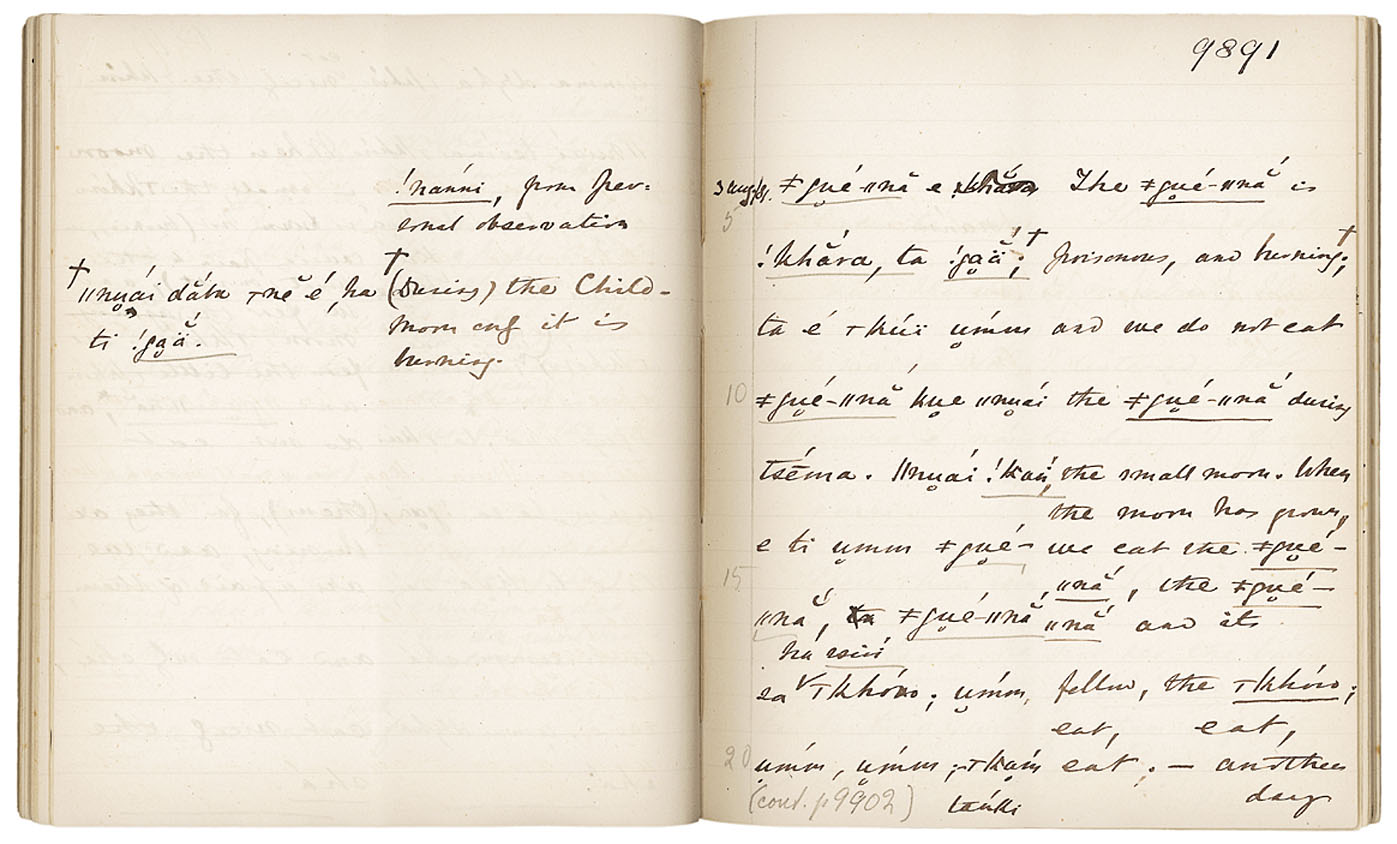 !nanni, from per-
sonal observation
† ǁnu̯ái dăba ꞇnĕ é, ha
ti !ga̯ä̆.
† (During) the Child-
moon it is
burning.
9891
3 Aug/81. ǂgu̯é-ǁnă e The ǂgu̯é-ǁnă is
5
!khăra, ta !ga̯ä̆; † poisonous, and burning†;
ta é ꞇkúï u̯mm and we do not eat
10 ǂgu̯é-ǁnă ku̯e ǁnu̯ái the ǂgu̯é-ǁnă during
tséma. ǁnu̯ái !kań, the small moon. When
the moon has grown,
e ti u̯mm ǂgu̯é- we eat the ǂgu̯é-
15
ǁnă, the ǂgu̯é-
ǁnă, ta ǂgu̯é-ǁnă ǁnă and its
ha
sa ꞇkhóro; u̯ḿm, fellow, the ꞇkhóro;
eat, eat,
20 u̯ḿm, u̯ḿm; ꞇka̯ḿ eat; — another
(cont. p 9902) taúki day